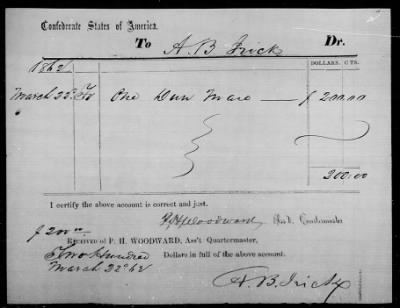 Confederate States of America.
To A. B. Frick Dr.
DOLLARS. CTS.
1862
March 22d To One Dun Mare $ 200.00
200.00
I certify the above account is correct and just.
P. H. Woodward,
$ 200.00
RECEIVED OF P. H. WOODWARD, Ass't Quartermaster,
Two Hundred Dollars in full of the above account.
March 22d 62
A. B. Frick